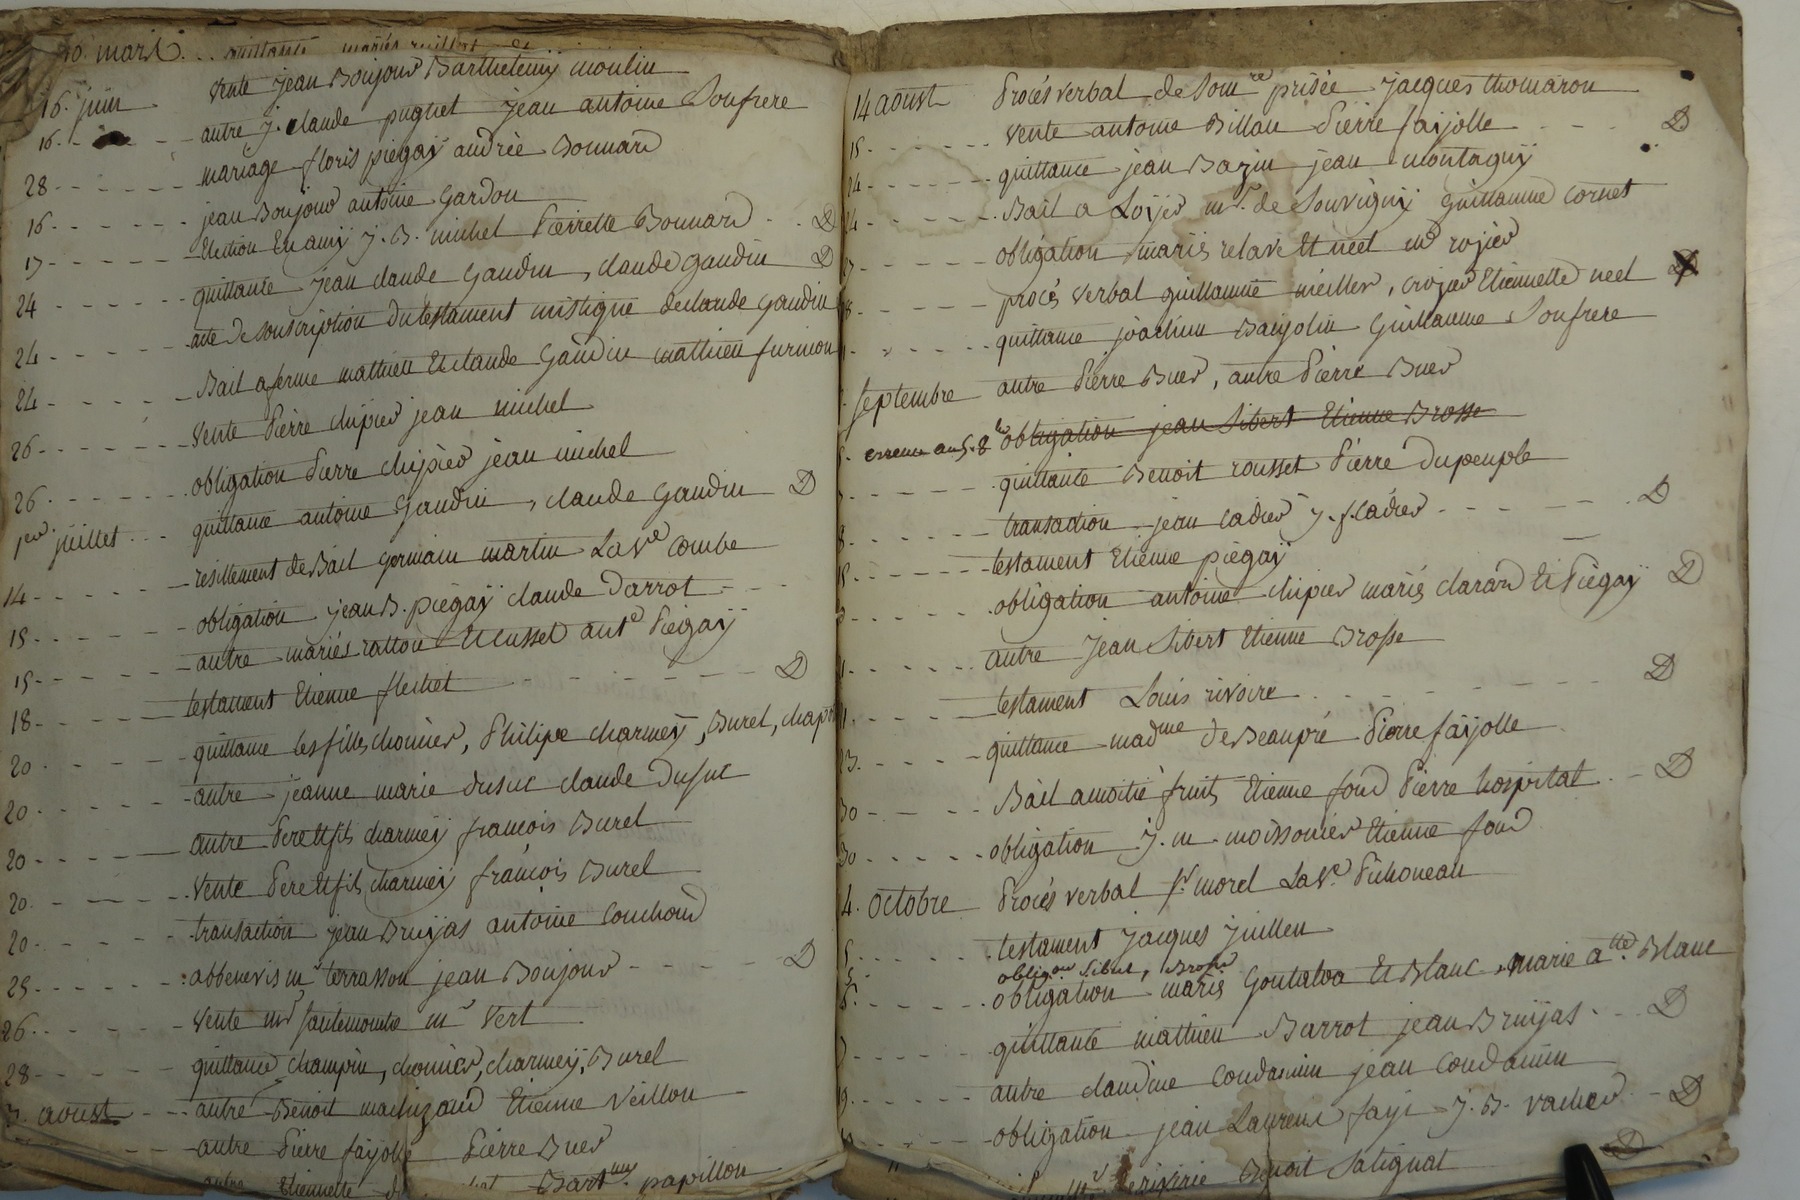 10. mars. .. quittance mariés
16. juin vente jean Boujour Barthelemy moulin
16. autre j. claude puguet jean antoine Soufrere
28 mariage floris piégaÿ andrée Bonnard
16 jean Boujour antoine Gardon
17 Election En amÿ J. B. michel Pierrette Bonnard D
24 quittance jean claude Gaudin, claude Gaudin D
24 acte de souscription du testament mistique de claude Gaudin
24 Bail a ferme mathieu & claude Gaudin mathieu furnion
26 vente Pierre chipier jean michel
26 obligation Pierre chipier jean michel
1er juillet quittance antoine Gaudin, claude Gaudin D
14 resillement de Bail germain martin La Ve Combe
15 obligation jean B. piégaÿ claude Darrot
15 autre mariés ratton & cusset ante Piégaÿ
18 testament Etienne flechet D
20 quittance les filles chonier, Philipe charmeÿ, Burel, chap
20 autre jeanne marie dusuc claude Dusuc
20 autre Pere & fils charmeÿ francois Burel
20 vente Pere & fils charmeÿ francois Burel
20 transaction jean Bruÿas antoine Couchoud
25 abbenevis mr terrasson jean Boujour D
26 vente mr fontemoute mr Vert
28 quittance champin, chonier, charmeÿ, Burel
3. aoust autre Benoit machizaud Etienne Veillon
autre Pierre faÿolle Pierre Buer
autre Etiennette Bartmy. papillon
14 aoust Procés verbal de Somre prisée jacques thomaron
15 vente antoine Billau Pierre faÿolle D
24 quittance jean Bazin jean montaguÿ
24 Bail a Loÿer mr. de Souviguÿ Guillaume Cornet
27 obligation mariés relave & néel mr rojier
procés verbal guillaume méiller, crozier Etiennette neel D
quittance joachim Banjolin Guillaume Soufrere
septembre autre Pierre Buer, autre Pierre Buer
erreur au 5. 8bre obligation jean Sibert Etienne Brosse
quittance Benoit rousset Pierre Dupeuple
8 transaction jean Cadier j. f. Cadier D
testament Etienne piégaÿ
obligation antoine chipier mariés clarard & Piégaÿ D
autre Jean Sibert Etienne Brosse
11 testament Louis rivoire D
23 quittance madme de Beaupré Pierre faÿolle
30 Bail a moitié fruits Etienne fond Pierre hospital D
30 obligation J. m. moissonier Etienne fond
4. octobre Procés verbal sr. morel La Ve. Pichoneau
5 testament jacques juillen
5 obligon Sibert, Brosse
5 obligation mariés Goutaloa & Blanc, marie atte. Blanc
7 quittance mathieu Barrot jean Bruÿas D
9 autre claudine Condamin jean Condamin
obligation jean Laurent faÿe J. B. vacher D
Benoit Salignat D